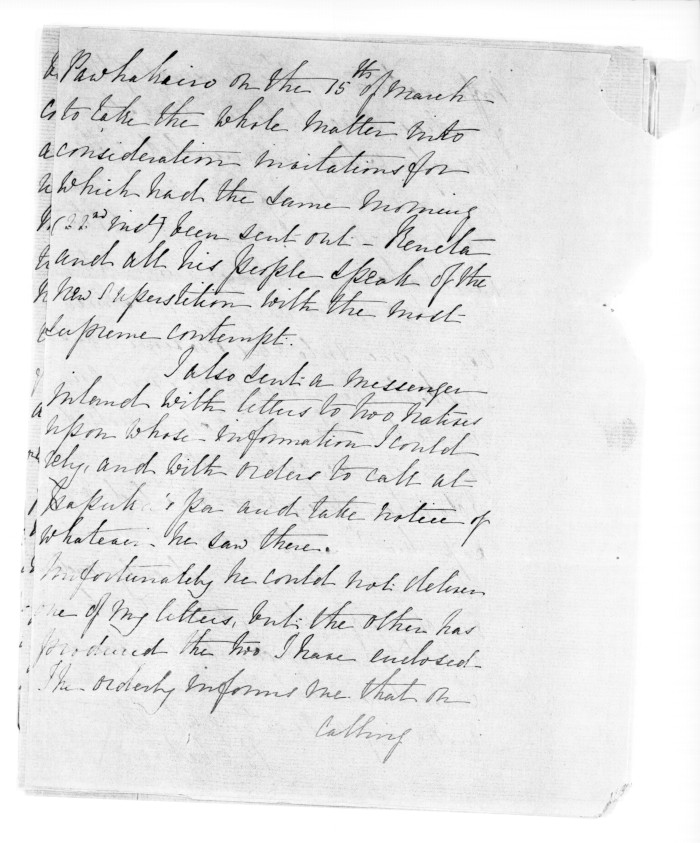 Pawhakairo on the 15th of March
to take the whole matter into
consideration invitations for
which had the same morning
(22nd inst) been sent out - Renata
and all his people speak of the
new superstition with the most
supreme contempt.
I also sent a messenger
inland with letters to two natives
upon whose information I could
rely, and with orders to call at
pa and take notice of
whatever he saw there.
Unfortunately he could not deliver
one of my letters, but the other has
produced the two I have enclosed.
The orderly informs me that on
calling